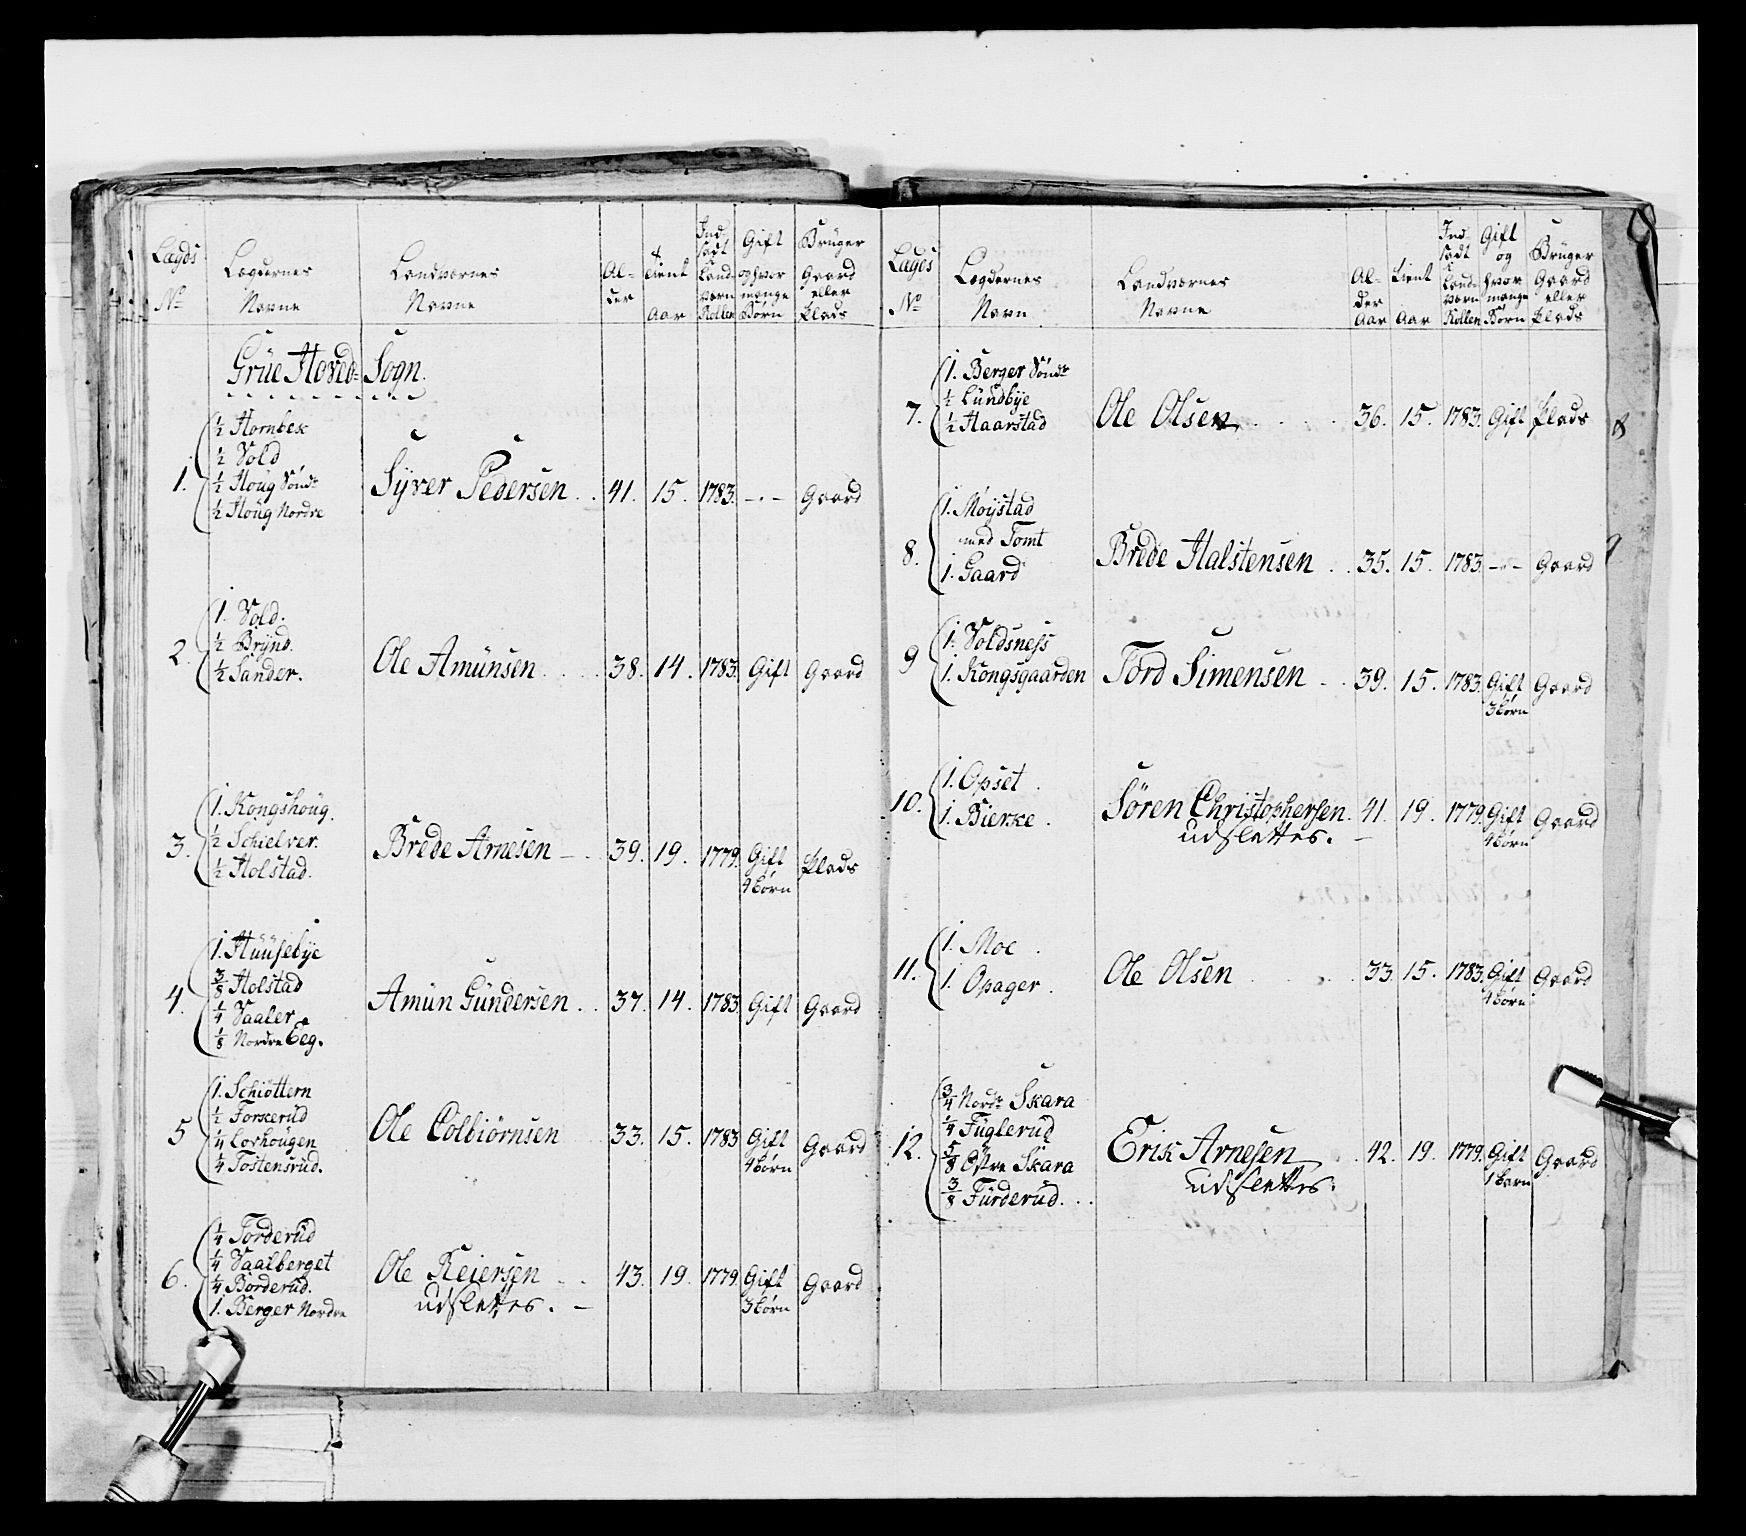 Lægds No | Lægdernes Navne | Landværnes Navne | Al- der | tient Aar | Ind- sadt i Land- værn Rollen | Gift og hvor mange Børn | Bruger Gaard eller Plads
Grüe Hoved- Sogn.
1. | ½ Hornbek | Syver Pedersen | 41. | 15. | 1783. | -.- | Gaard
½ Vold
½ Houg Sönd:
½ Houg Nordre
2. | 1. Vold. | Ole Amünsen | 38. | 14. | 1783. | Gift | Gaard
½ Brÿnd.
½ Sander.
3. | 1. Kongshoug. | Brede Arnesen | 39. | 19. | 1779. | Gift 4 börn | Plads
½ Schielver.
½ Holstad.
4. | 1. Huusebÿe | Amün Gündersen | 37. | 14. | 1783. | Gift | Gaard
3/8 Holstad
¼ Vaaler
1/8 Nordre Eeg.
5 | 1. Schiöttern | Ole Colbiörnsen | 33. | 15. | 1783 | Gift 4 börn | Gaard
½ Forkerud
¼ Lorhougen
¼ Tostensrud.
6. | ¼ Torderud | Ole Reiersen | 43. | 19. | 1779. | Gift 3 börn | Gaard
¼ Vaalberget | udslettes. -
¼ Borderud.
1. Berger Nordre
Lægds No | Lægdernes Navn | Landværnes Navne | Al- der Aar | tient Aar | Ind- sadt i Land- værn Rollen | Gift og hvor mange Börn | Bruger Gaard eller Plads
7. | 1. Berger Sönd: | Ole Olsen | 36. | 15. | 1783. | Gift | Plads
½ Lundbÿe
½ Haarstad
8. | 1. Möystad | Brede Halstensen | 35. | 15. | 1783. | -.- | Gaard
med Tomt
1. Gaard
9 | 1. Voldsness | Tord Simensen | 39. | 15. | 1783. | Gift 3 börn | Gaard
1. Kongsgaarden
10. | 1. Opset | Sören Christophersen. | 41. | 19. | 1779. | Gift 4 börn | Gaard
1. Bierke. | udslettes. -
11. | 1. Moe | Ole Olsen | 33. | 15. | 1783. | Gift 4 börn | Gaard
1. Opager.
12. | ¾ Nordr: Skara | Erik Arnesen | 42. | 19. | 1779. | Gift 1 barn | Gaard
¼ Füglerud | udslettes.
5/8 Östre Skara
3/8 Fürderud.